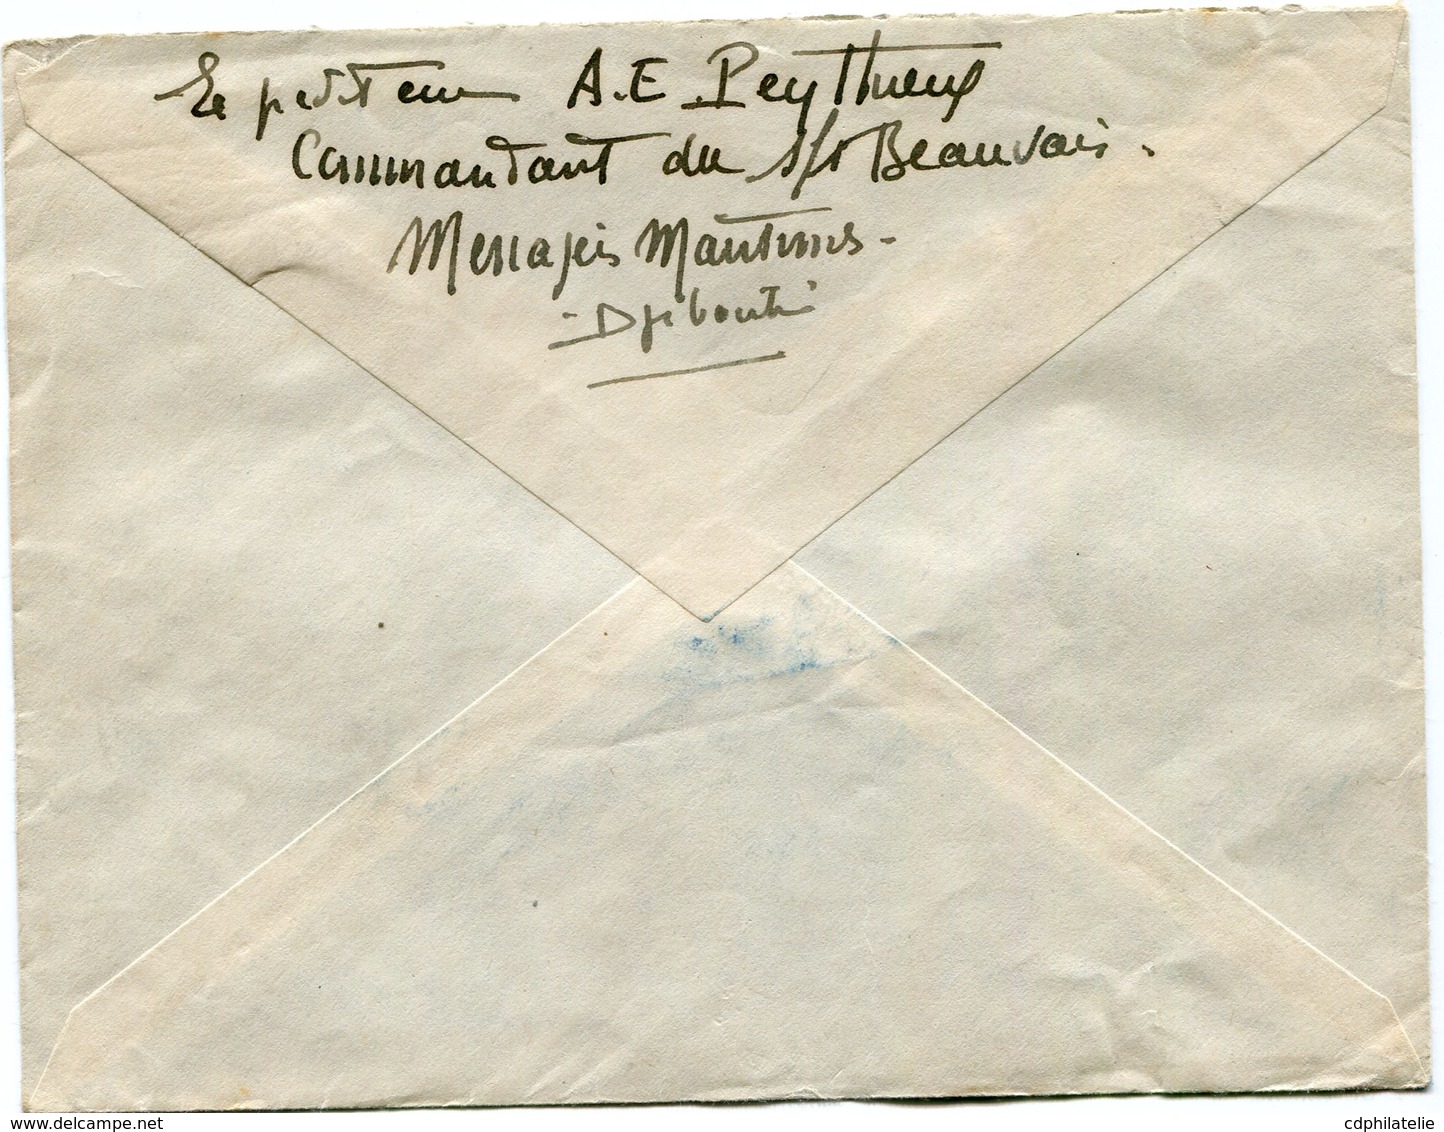 Expediteur A.E. Peythieux
Commandant du s/s Beauvais.
Messageries Maritimes -
- Djibouti
www.delcampe.net
cdphilatelie